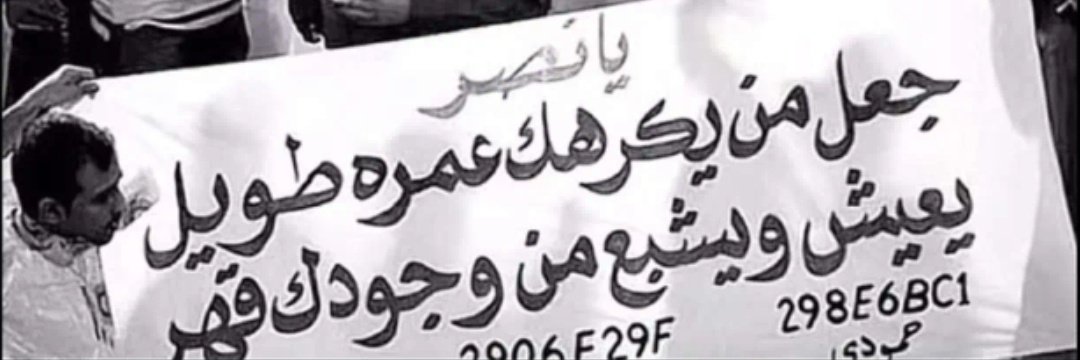 يا نصر
جعل من يكرهك عمره طويل
يعيش ويشبع من وجودك قهر
298E6BC1
2906F29F
حمودي